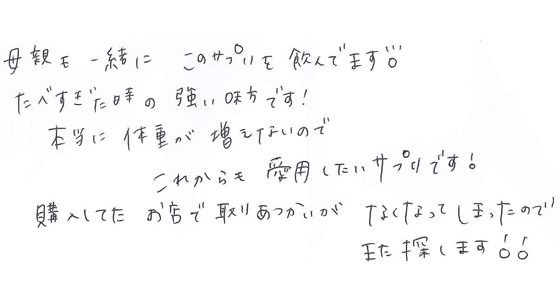 母親も一緒に このサプリを 飲んでます!!
たべすぎた時の 強い味方です!
本当に 体重が 増えないので
これからも 愛用したいサプリです!
購入してた お店で 取りあつかいが なくなってしまったので
また探します!!